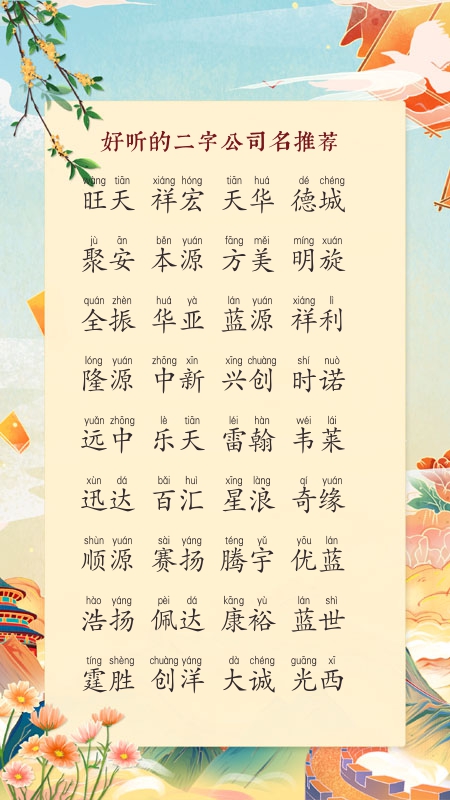 好听的二字公司名推荐
wàng tiān xiáng hóng tiān huá dé chéng
旺天 祥宏 天华 德城
jù ān běn yuán fāng měi míng xuán
聚安 本源 方美 明旋
quán zhèn huá yà lán yuán xiáng lì
全振 华亚 蓝源 祥利
lóng yuán zhōng xīn xīng chuàng shí nuò
隆源 中新 兴创 时诺
yuǎn zhōng lè tiān léi hàn wéi lái
远中 乐天 雷翰 韦莱
xùn dá bǎi huì xīng làng qí yuán
迅达 百汇 星浪 奇缘
shùn yuán sài yáng téng yǔ yōu lán
顺源 赛扬 腾宇 优蓝
hào yáng pèi dá kāng yù lán shì
浩扬 佩达 康裕 蓝世
tíng shèng chuàng yáng dà chéng guāng xī
霆胜 创洋 大诚 光西